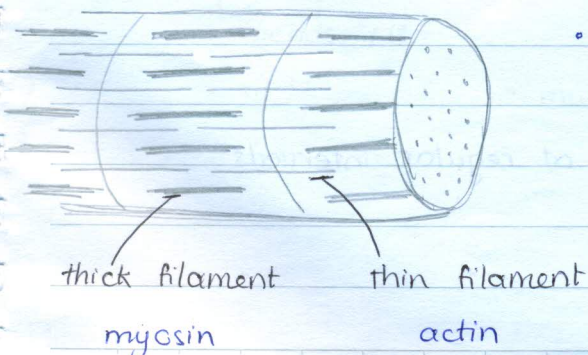 thick filament thin filament
myosin actin